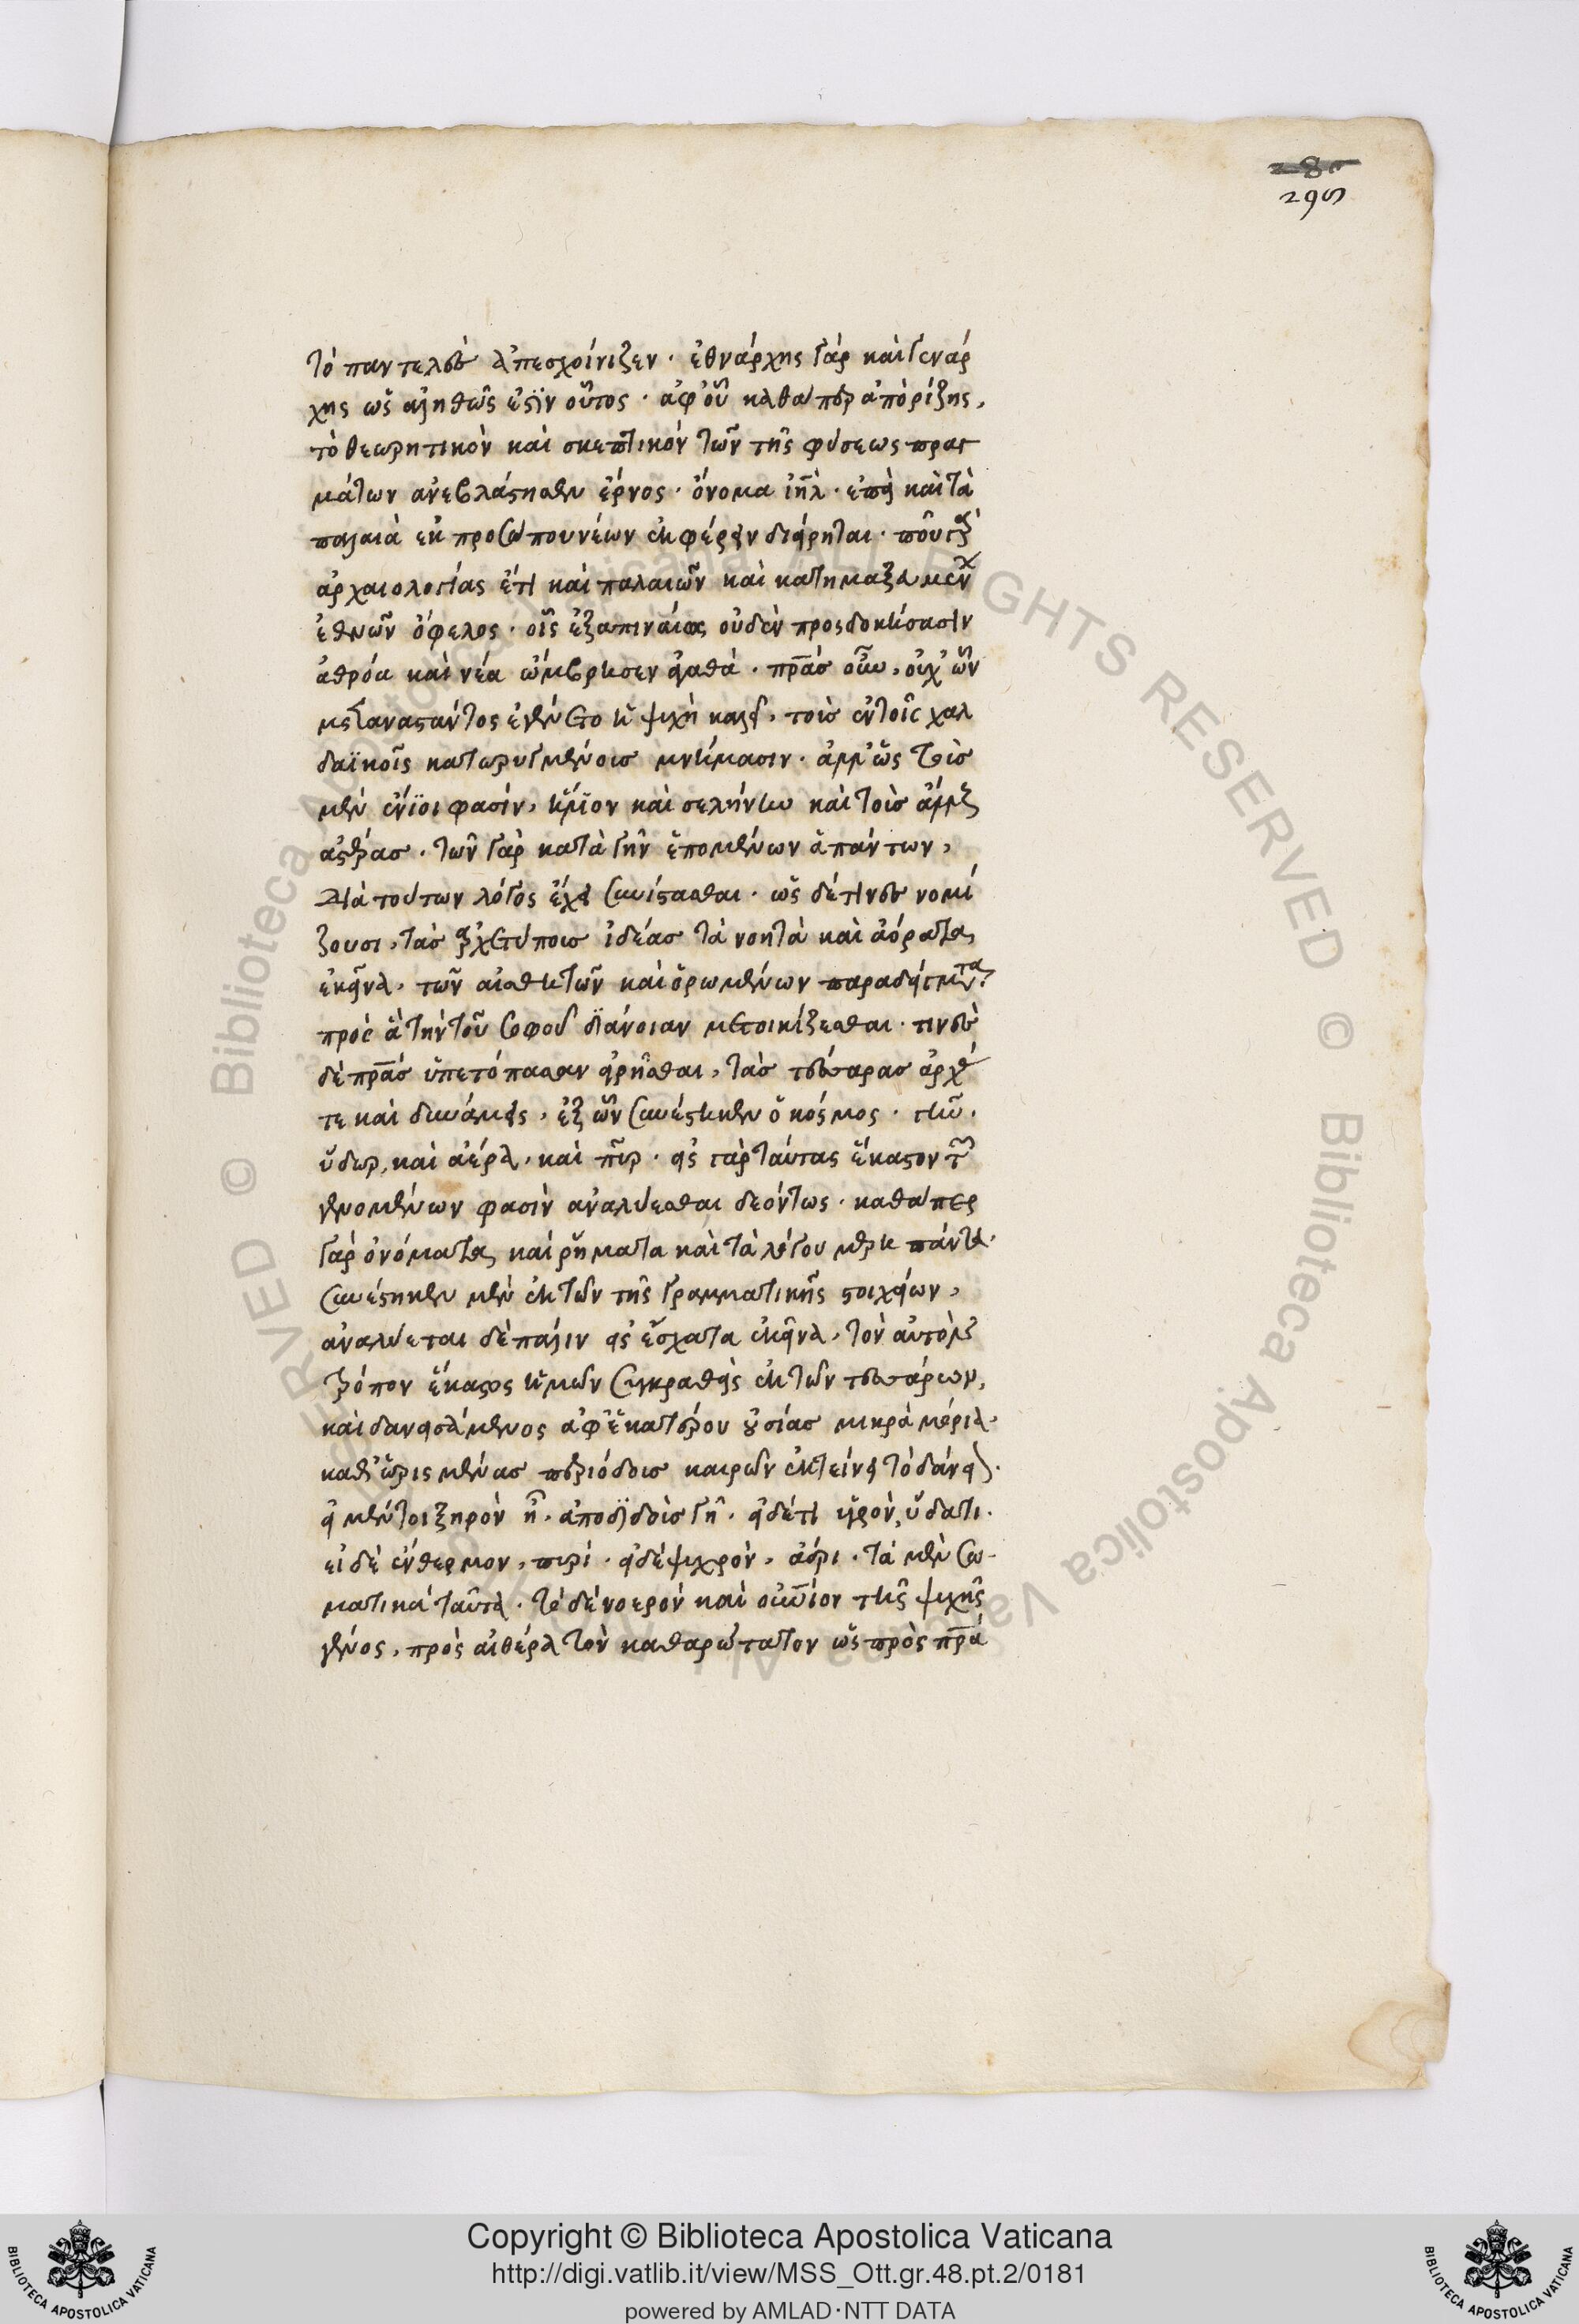 295
τὸ παντελὲς ἀπεσχοίνιζεν · ἐθνάρχης γάρ καὶ γενάρ
χης ὡς ἀληθῶς ἐστὶν οὗτος · ἀφ' οὗ καθάπερ ἀπὸ ρίζης,
τὸ θεωρητικὸν καὶ σκεπτικὸν τῶν τῆς φύσεως πραγ
μάτων ἀνεβλάστησεν ἔρνος · ὄνομα ἰηλ · ἐπεὶ καὶ τὰ
παλαιὰ ἐκ προσώπου νέων ἐκφέρειν διείρηται · ποῦ γὰρ
ἀρχαιολογίας ἔτι καὶ παλαιῶν καὶ κατημαξευμένων
ἐθνῶν ὄφελος · οἷς ἐξαπιναίως οὐδὲν προσδοκήσασιν
ἀθρόα καὶ νέα ὤμβρησεν ἀγαθά · πρας οὖν, οὐχ ὧν
μεταναστάντος ἐγένετο ἡ ψυχὴ, τοῖς ἐν τοῖς χαλ
δαϊκοῖς κατωρυγμένοις μνήμασιν · ἀλλ' ὡς
μὲν ἔνιοι φασίν, ἥλιον καὶ σελήνην καὶ τοὺς ἄλλους
ἀστέρας · τῶν γὰρ κατὰ γῆν ἑπομένων ἁπάντων,
διὰ τούτων λόγος ἔχει συνίστασθαι · ὡς δέ τινες νομί
ζουσι, τὰς ἀρχετύπους ἰδέας τὰ νοητὰ καὶ ἀόρατα
ἐκεῖνα, τῶν αἰσθητῶν καὶ ὁρωμένων παραδείγματα
πρὸς ἃ τὴν τοῦ σοφοῦ διάνοιαν μετοικίζεσθαι · τινὲς
δὲ πρας ὑπετόπασαν εἰρῆσθαι, τὰς τέσσαρας ἀρχάς
τε καὶ δυνάμεις, ἐξ ὧν συνέστηκεν ὁ κόσμος · γῆν.
ὕδωρ, καὶ ἀέρα, καὶ πῦρ · εἰς γὰρ ταύτας ἕκαστον τῶν
γενομένων φασὶν ἀναλύεσθαι δεόντως · καθάπερ
γάρ ὀνόματα καὶ ρήματα καὶ τὰ λόγου μέρη πάντα
συνέστηκεν μὲν ἐκ τῶν τῆς γραμματικῆς στοιχείων,
ἀναλύεται δὲ πάλιν εἰς ἔσχατα ἐκεῖνα, τὸν αὐτὸν
τρόπον ἕκαστος ἡμῶν συγκραθεὶς ἐκ τῶν τεσσάρων,
καὶ δανεισάμενος ἀφ' ἑκατέρου οὐσίας μικρὰ μόρια
καθ' ὡρισμένας περιόδους καιρῶν ἐκτείνει τὸ δάνειον.
εἰ μέν τοι ξηρὸν ἦ, ἀποδιδοὺς γῆ · εἰ δέ τι ὑγρὸν, ὕδατι.
εἰ δὲ ἔνθερμον, πυρί · εἰ δὲ ψυχρὸν, ἀέρι · τὰ μὲν σω-
ματικὰ ταῦτα · τὸ δὲ νοερὸν καὶ οὐνίον τῆς ψυχῆς
γένος, πρὸς αἰθέρα τὸν καθαρώτατον ὡς πρὸς πρα
© Biblioteca Apostolica Vaticana ALL RIGHTS RESERVED © Biblioteca Apostolica Vaticana ALL RIGHTS RESERVED
Copyright © Biblioteca Apostolica Vaticana
http://digi.vatlib.it/view/MSS_Ott.gr.48.pt.2/0181
powered by AMLAD·NTT DATA
BIBLIOTECA APOSTOLICA VATICANA
BIBLIOTECA APOSTOLICA VATICANA